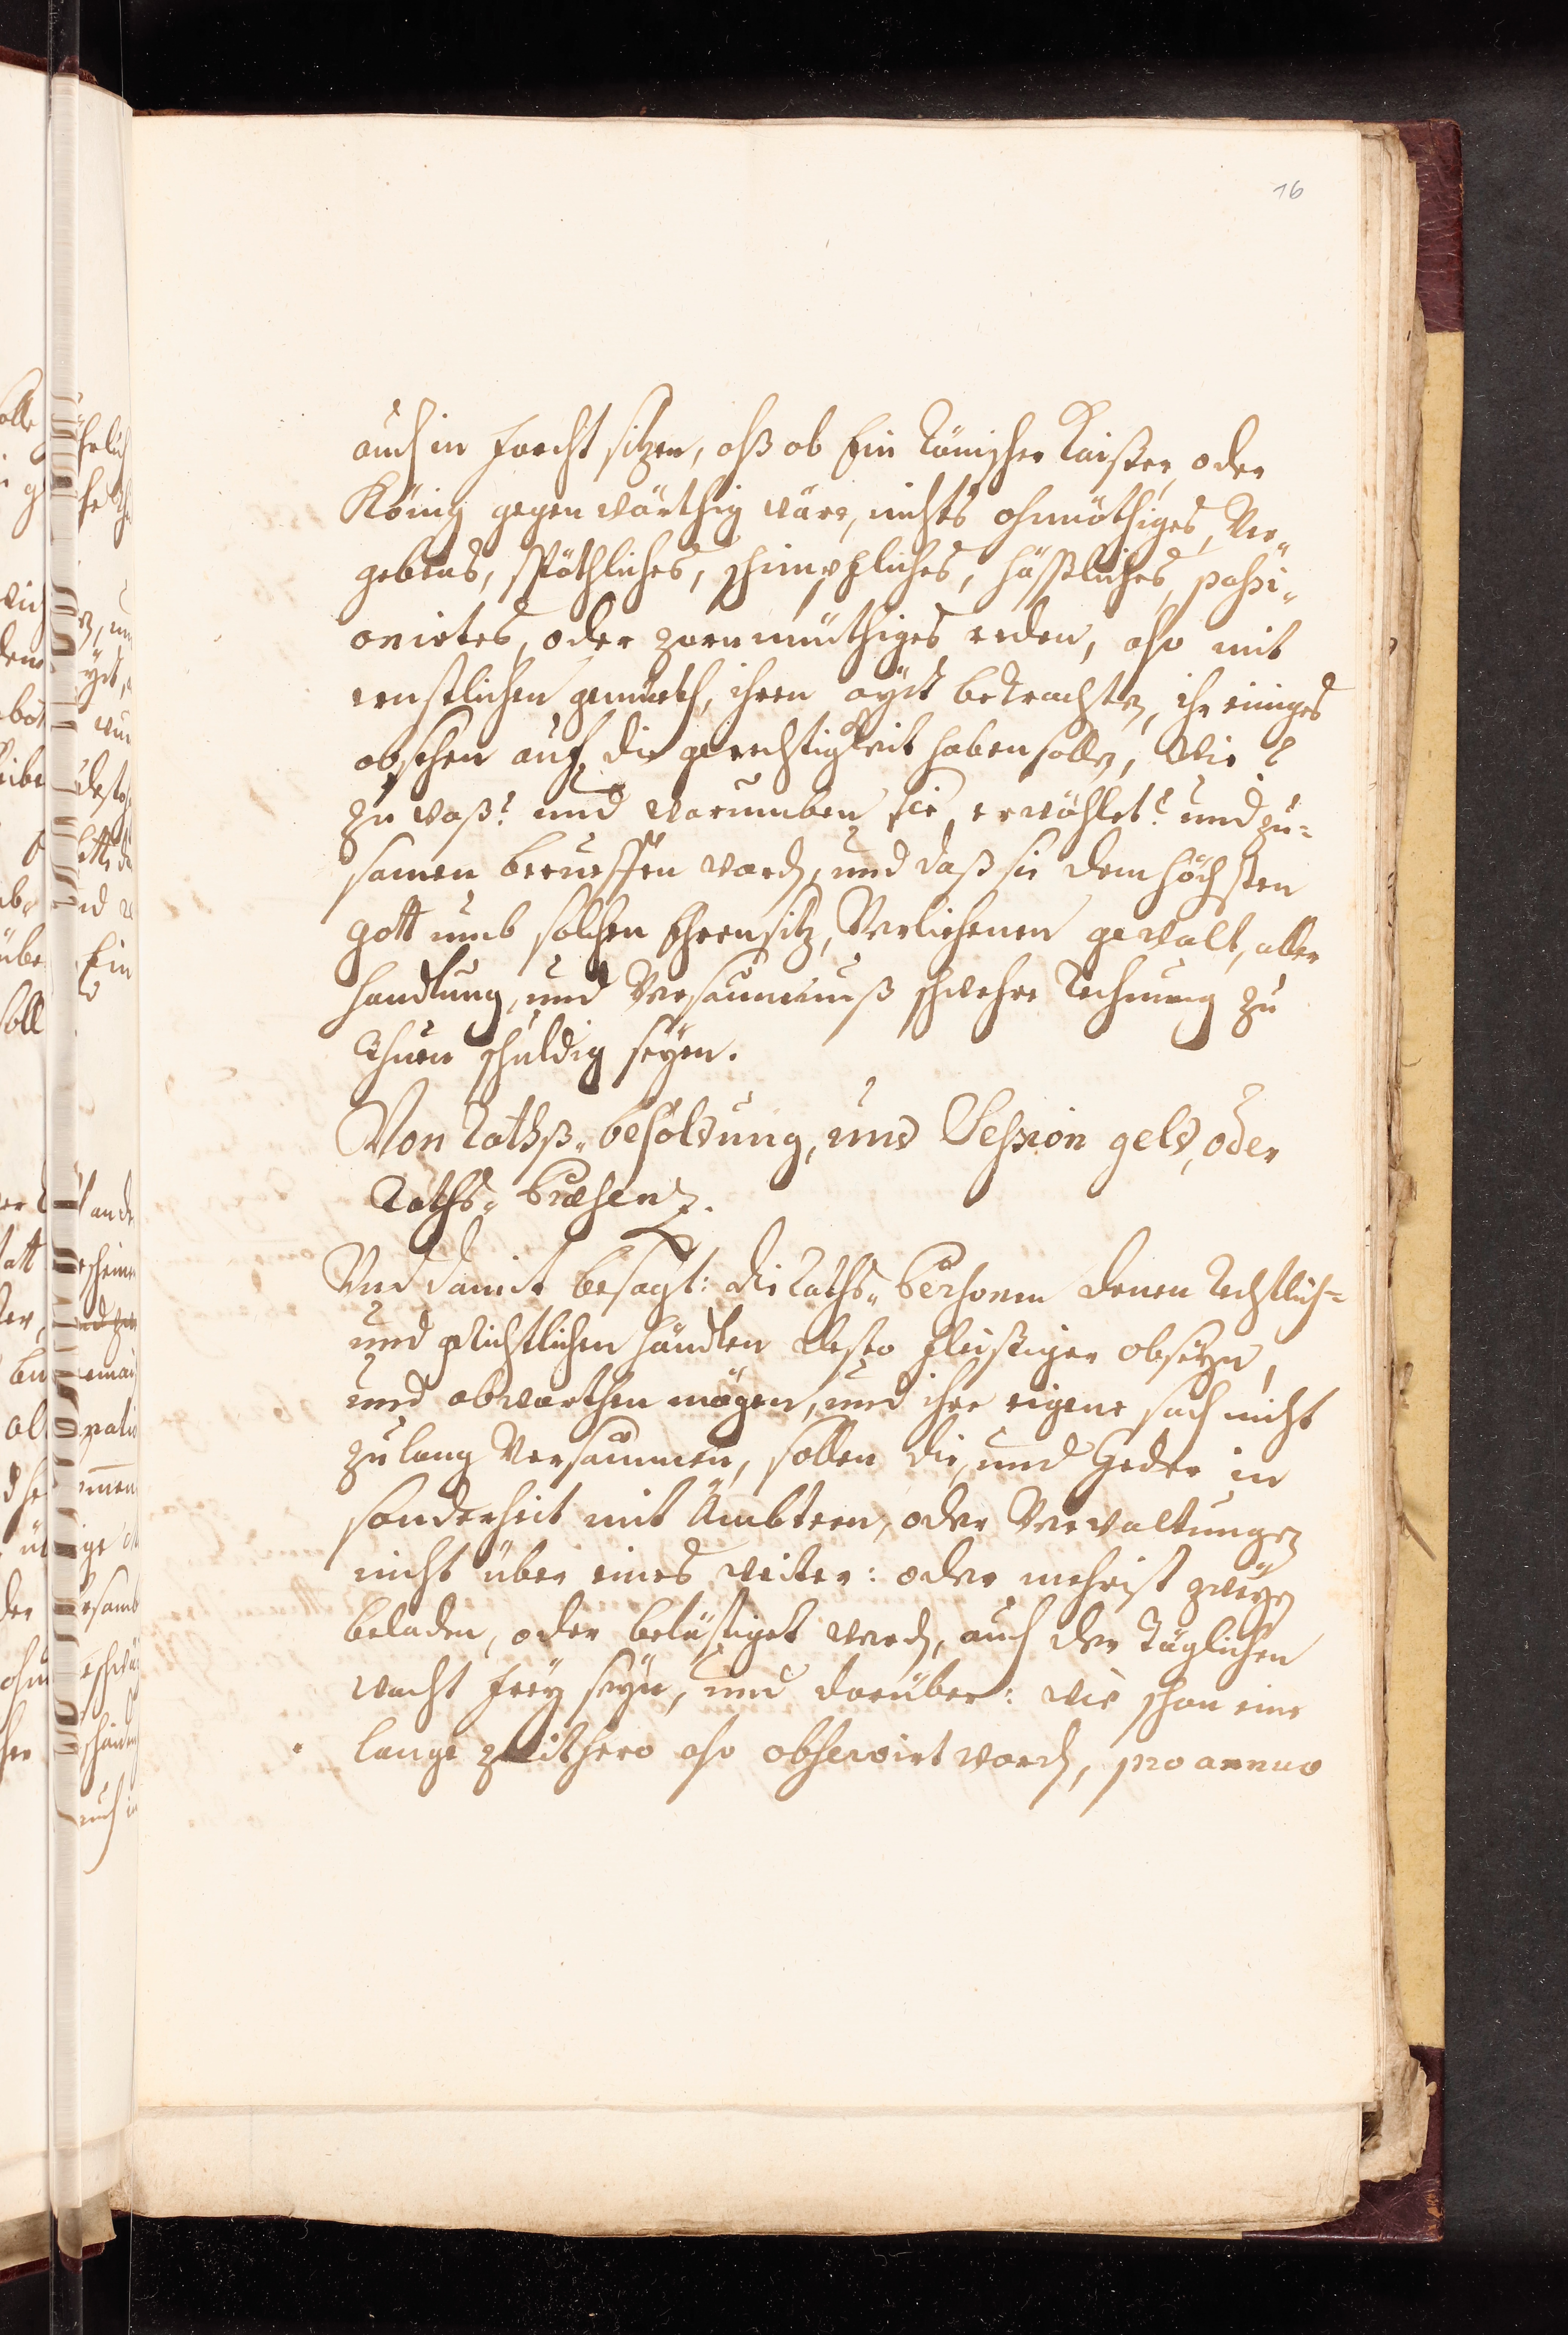 16
auch in forcht sitzen, alß ob Ein Römischer Kaißer, oder
König gegenwärthig wäre, nichts ohnnöthiges, Ver„
gebens, spöthliches, schimpfliches, häßliches, passi„
onirtes, oder zornmüthiges reden, also mit
ernstlichen gemüeth, ihren aydt betrachten, ihr einiges
absehen auf die gerechtigkeit haben sollen, Wie?
zu waß? und warumben sie erwöhlet? und zu=
samen berueffen worden, und daß sie dem höchsten
gott umb solchen Ehrensitz, Verliehenen gewalt, aller
handlung, und Versaumnuß schwehre Rechnung zu
thuen schuldig seyen.
Von Rathß„ besoldung, und Session geld, oder
Raths„ Præsenz.
Und damit besagt: die Raths„ Persohnen denen Rechtlich=
und grichtlichen händlen desto fleissiger obseyn,
und abwarthen mögen, und ihre eigene sach nicht
zu lang Versaumen, sollen die, und Jeder in
sonderheit mit Ämbtern, oder Verwaltungen
nicht über eines weiter: oder mehrist zweyen
beladen, oder belästiget werden, auch der Täglichen
wacht frey seyn, und darüber: wie schon eine
lange zeithero also observirt worden, pro annuo